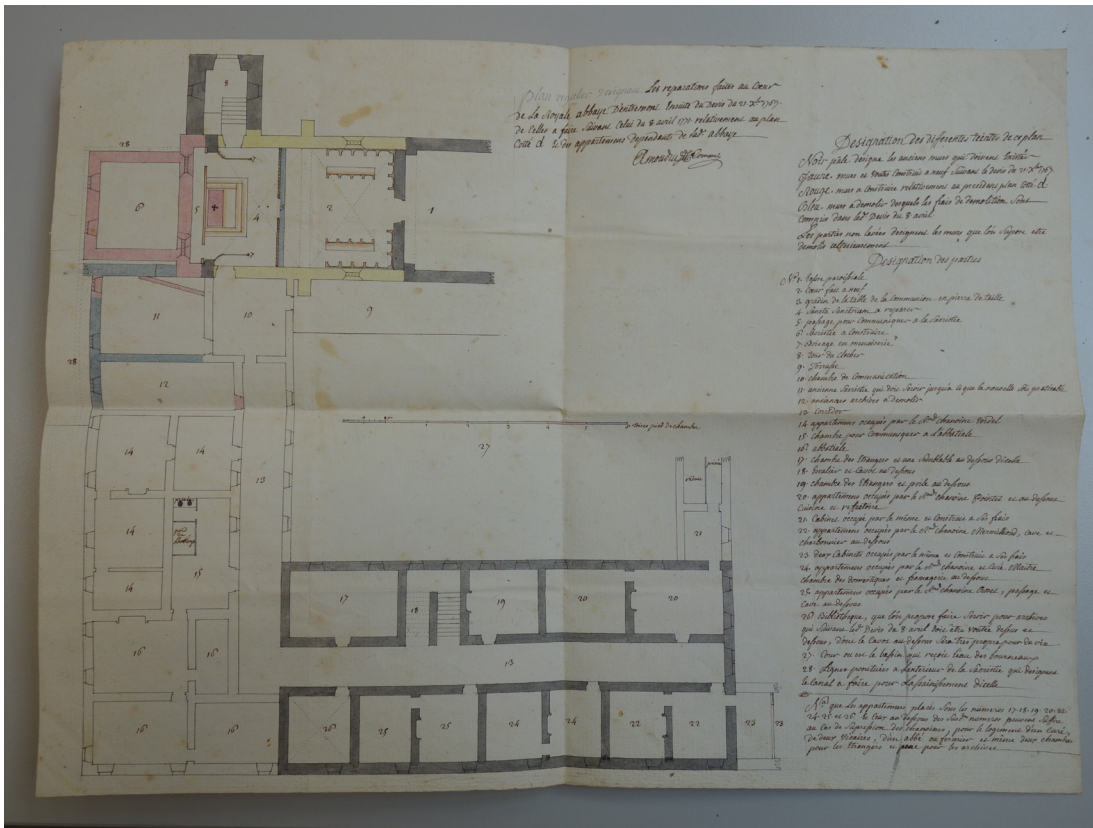 Plan regulier designant Les reparations faites au Cœur
de La Royale abbaye D'entremont Ensuite du Devis du 21 Xbre 1767.
de Celles a faire Suivant Celui du 8 avril 1771 relativement au plan
Cotté d. et des appartements dependants de ladte abbaye
Designation des diferentes teintes de ce plan
Noir pale. designe les anciens murs qui doivent
Jaune. murs et voutes construits a neuf Suivant le devis du 21 Xbre 1767.
Rouge. murs a construire relativement au precedent plan Cotté d.
Bleu. murs a demolir desquels les frais de demolition Sont
Compris dans led. Devis du 8 avril
Les parties non lavées designent les murs que l'on Supose etre
demolis
Designation des parties
No. 1. Eglise paroissiale
2. Cœur fait a neuf
3. gradin de la table de la Communion en pierre de taille
4. Sancta Sanctoriam a reparer
5. passage pour Communiquer a la Sacristie
6. Sacristie a Construire
7. Boisage en menuiserie
8. tour du clocher
9. Terrasse
10. chambre de Communication
11. ancienne Sacristie qui doit Servir jusqu'a ce que la nouvelle Soit praticable
12. anciennes archives a demolir
13. Corridor
14. appartement occupés par le Rd chanoine Verdel
15. chambre pour Communiquer a l'abbatiale
16. abbatiale
17. chambre des Etrangers et une Semblable au dessous d'icelle
18. Escalier et Caves au dessous
19. chambre des Etrangers et poile au dessous
20. appartement occupés par le Rd chanoine Pointet et au dessous
Cuisine et refectoire
21. Cabinet occupé par le même et Construit a Ses frais
22. appartement occupés par le Rd chanoine Marmilliod, cave et
charbonnier au dessous
23. deux Cabinets occupés par le même et Construits a Ses frais
24. appartement occupés par le Rd chanoine et Curé
chambre des domestiques et fromagerie au dessous
25. appartement occupés par le Rd chanoine, passage et
cave au dessous
26. Bibliotheque, que l'on propose faire Servir pour archives
qui Suivant led. Devis du 8 avril doit etre voutée dessus et
dessous, dont la Cave au dessous Sera tres propre pour du vin
27. Cour ou est le bassin qui reçoit l'eau des bourneaux
28. Lignes ponctuées a l'exterieur de la Sacristie qui designent
le Canal a faire pour l'assainissement d'icelle
Na. que les appartements placés Sous les numeros 17. 18. 19. 20. 22.
24. 25. et 26. et Ceux au dessous des Susds. numeros peuvent Suffire
au Cas de Supression des chanoines, pour le logement d'un Curé,
de deux Vicaires, d'un abbé ou fermier et même deux chambres
pour les Etrangers et une pour les archives
8
28
6
5
4
2
1
11
10
9
28
12
13
14
14
27
14
14
15
21
17
18
19
20
20
16
16
13
16
16
26
25
25
24
24
22
22
23
23